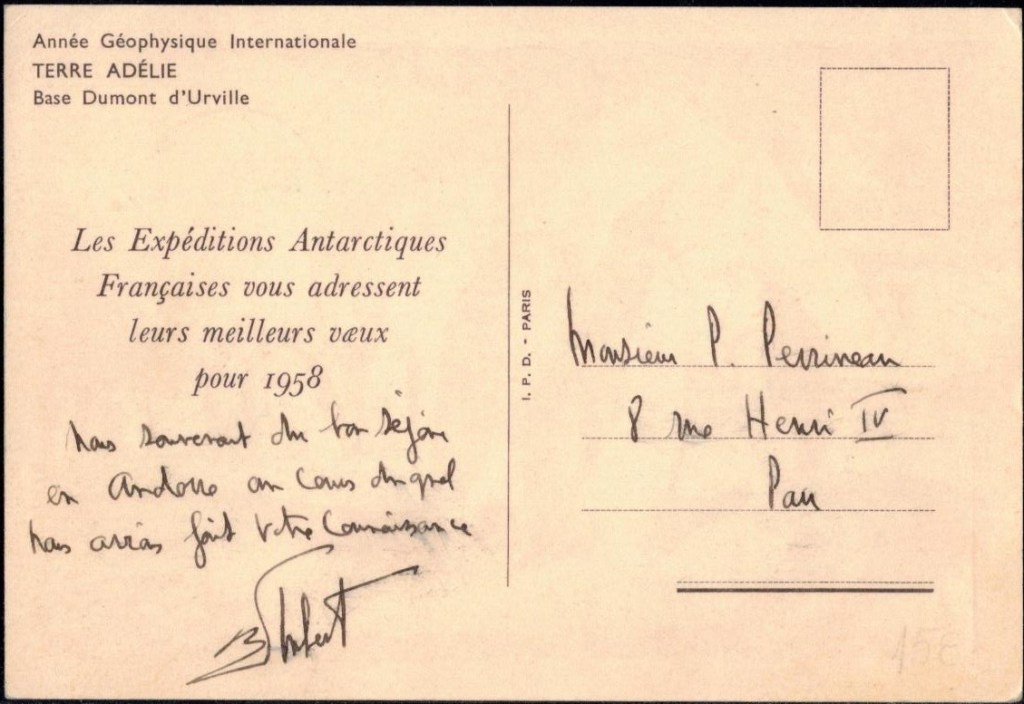 Année Géophysique Internationale
TERRE ADÉLIE
Base Dumont d'Urville
Les Expéditions Antarctiques
Françaises vous adressent
leurs meilleurs vœux
pour 1958
nous souvenant du bon séjour
en Andorre au cours duquel
nous avions fait votre connaissance
I. P. D. - PARIS
Monsieur P. Perrineau
8 rue Henri IV
Pau
15€